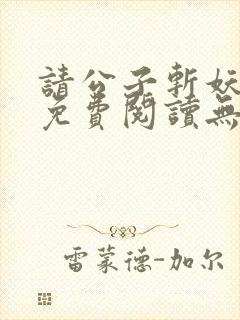 請公子斬妖
免費閱讀無
雷蒙德-加尔